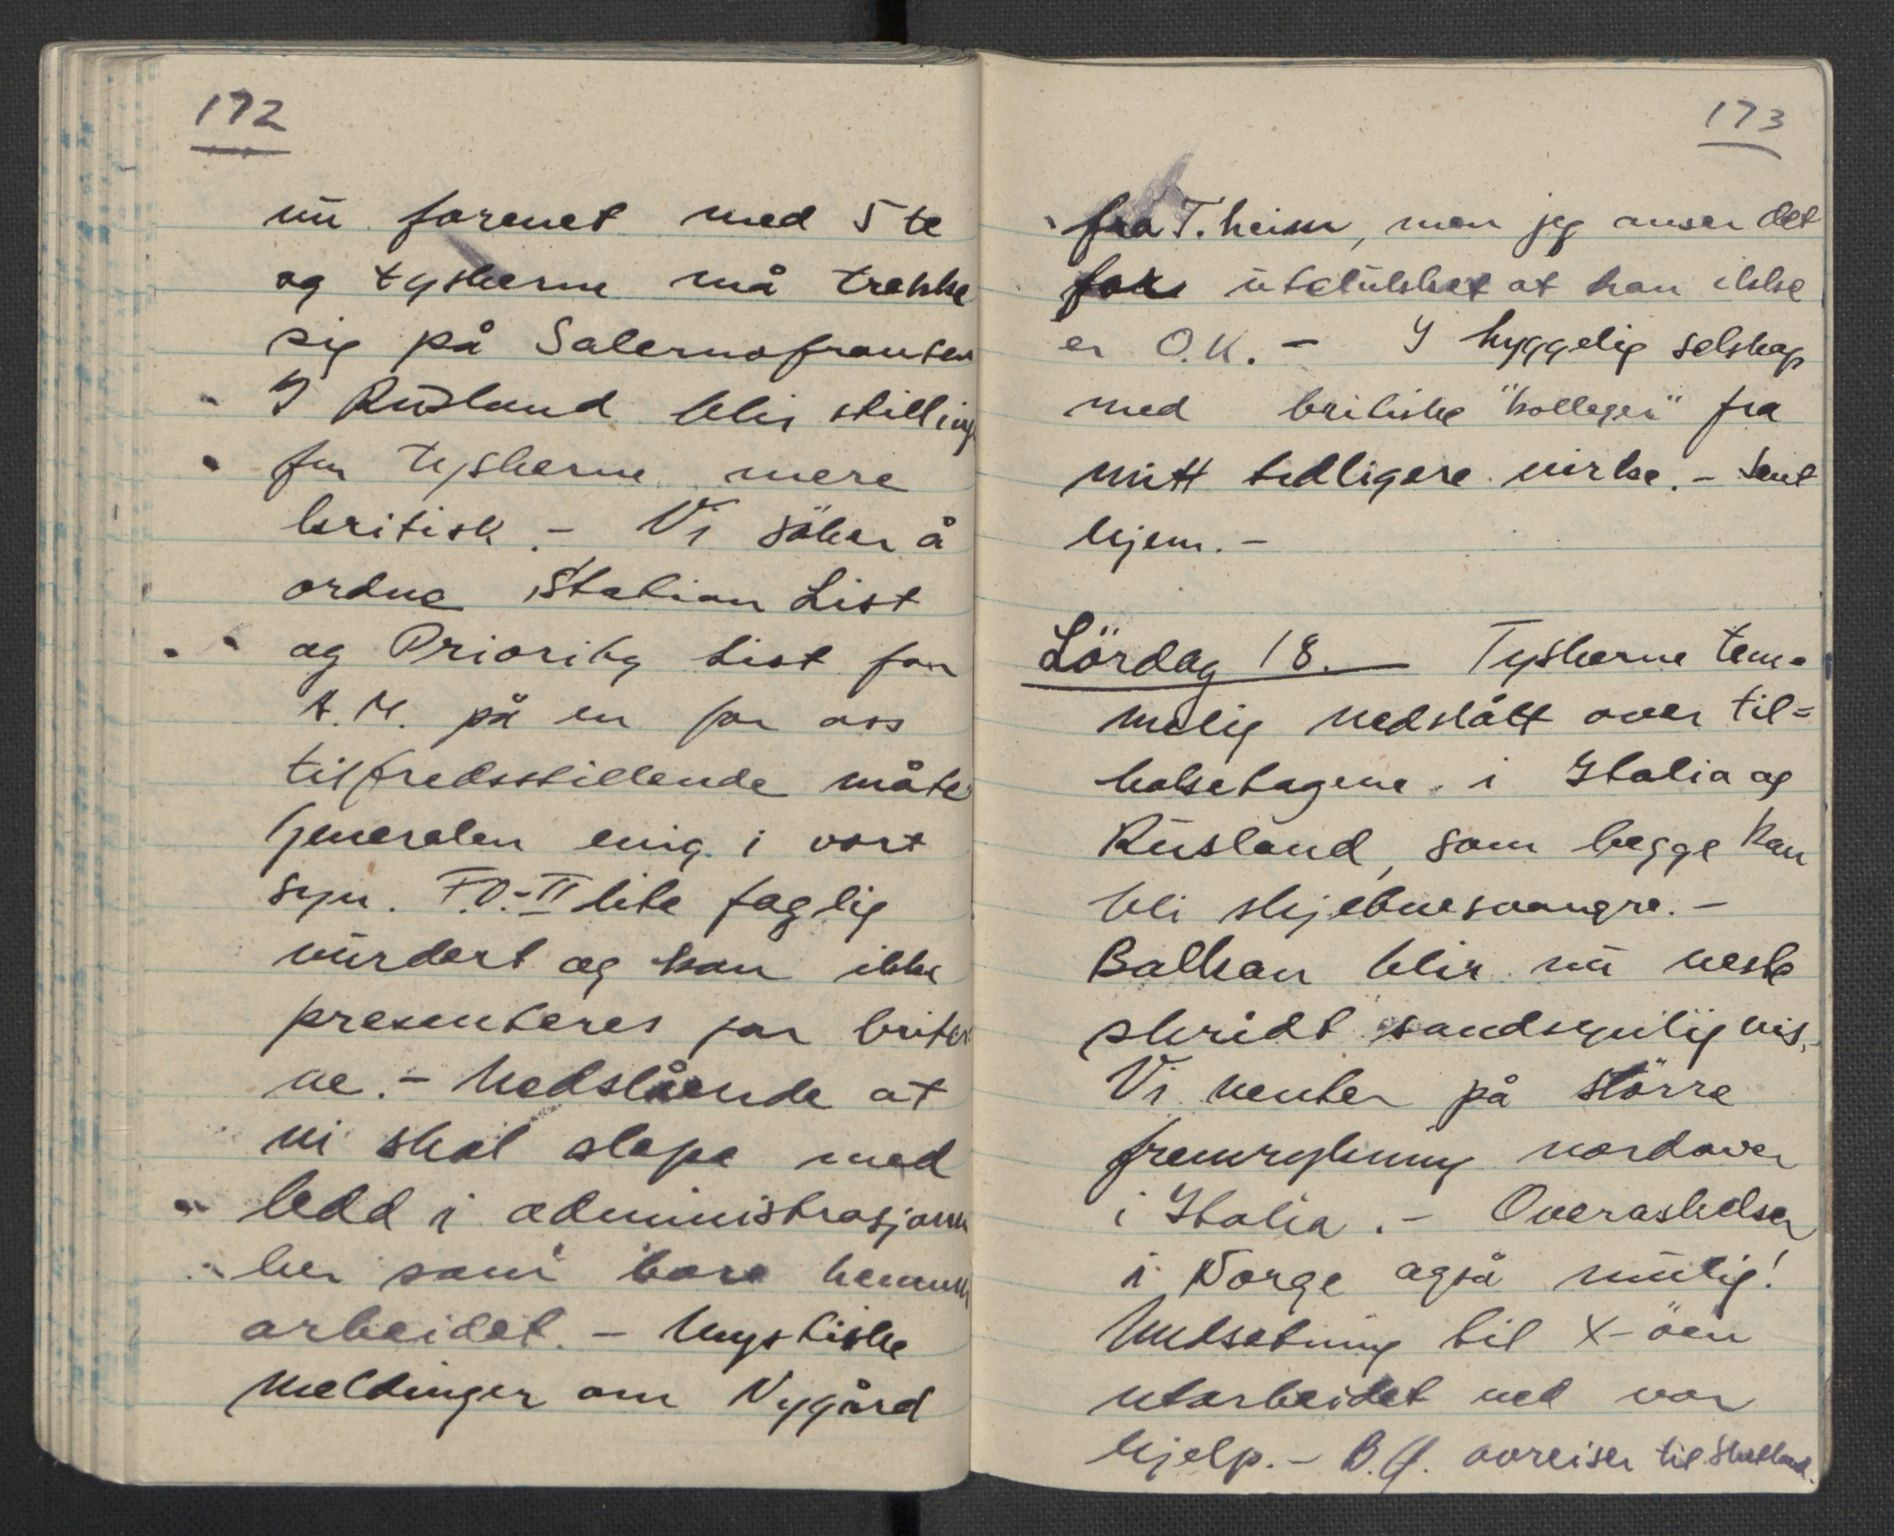 172
nu forenet med 5te
og tyskerne må trekke
sig på Salernofronten
I Rusland blir stilling
for tyskerne mere
kritisk. – Vi söker å
ordne Station List
og Priority List for
A.M. på en for oss
tilfredsstillende måte
Generalen enig i vort
syn. F.O.-II lite faglig
vurdert og kan ikke
presenteres for briter
ne. – Nedslående at
vi skal slepe med
ledd i administrasjonen
her som bare hemmer
arbeidet. – Mystiske
meldinger om Nygård
173
fra T.heim, men jeg anser det
for utelukket at han ikke
er O.K. – I hyggelig selskap
med britiske "kolleger" fra
mitt tidligere virke. – Sent
hjem. –
Lördag 18. – Tyskerne tem-
melig nedslått over til=
bakетogene i Italia og
Rusland, som begge kan
bli skjebnesvangre. –
Balkan blir nu neste
skridt sandsynligvis.
Vi venter på större
fremrykning nordover
i Italia. – Overaskelser
i Norge også mulig!
Undsetning til X-öen
utarbeidet ved vor
hjelp. – B.G. avreiser til Shetland.